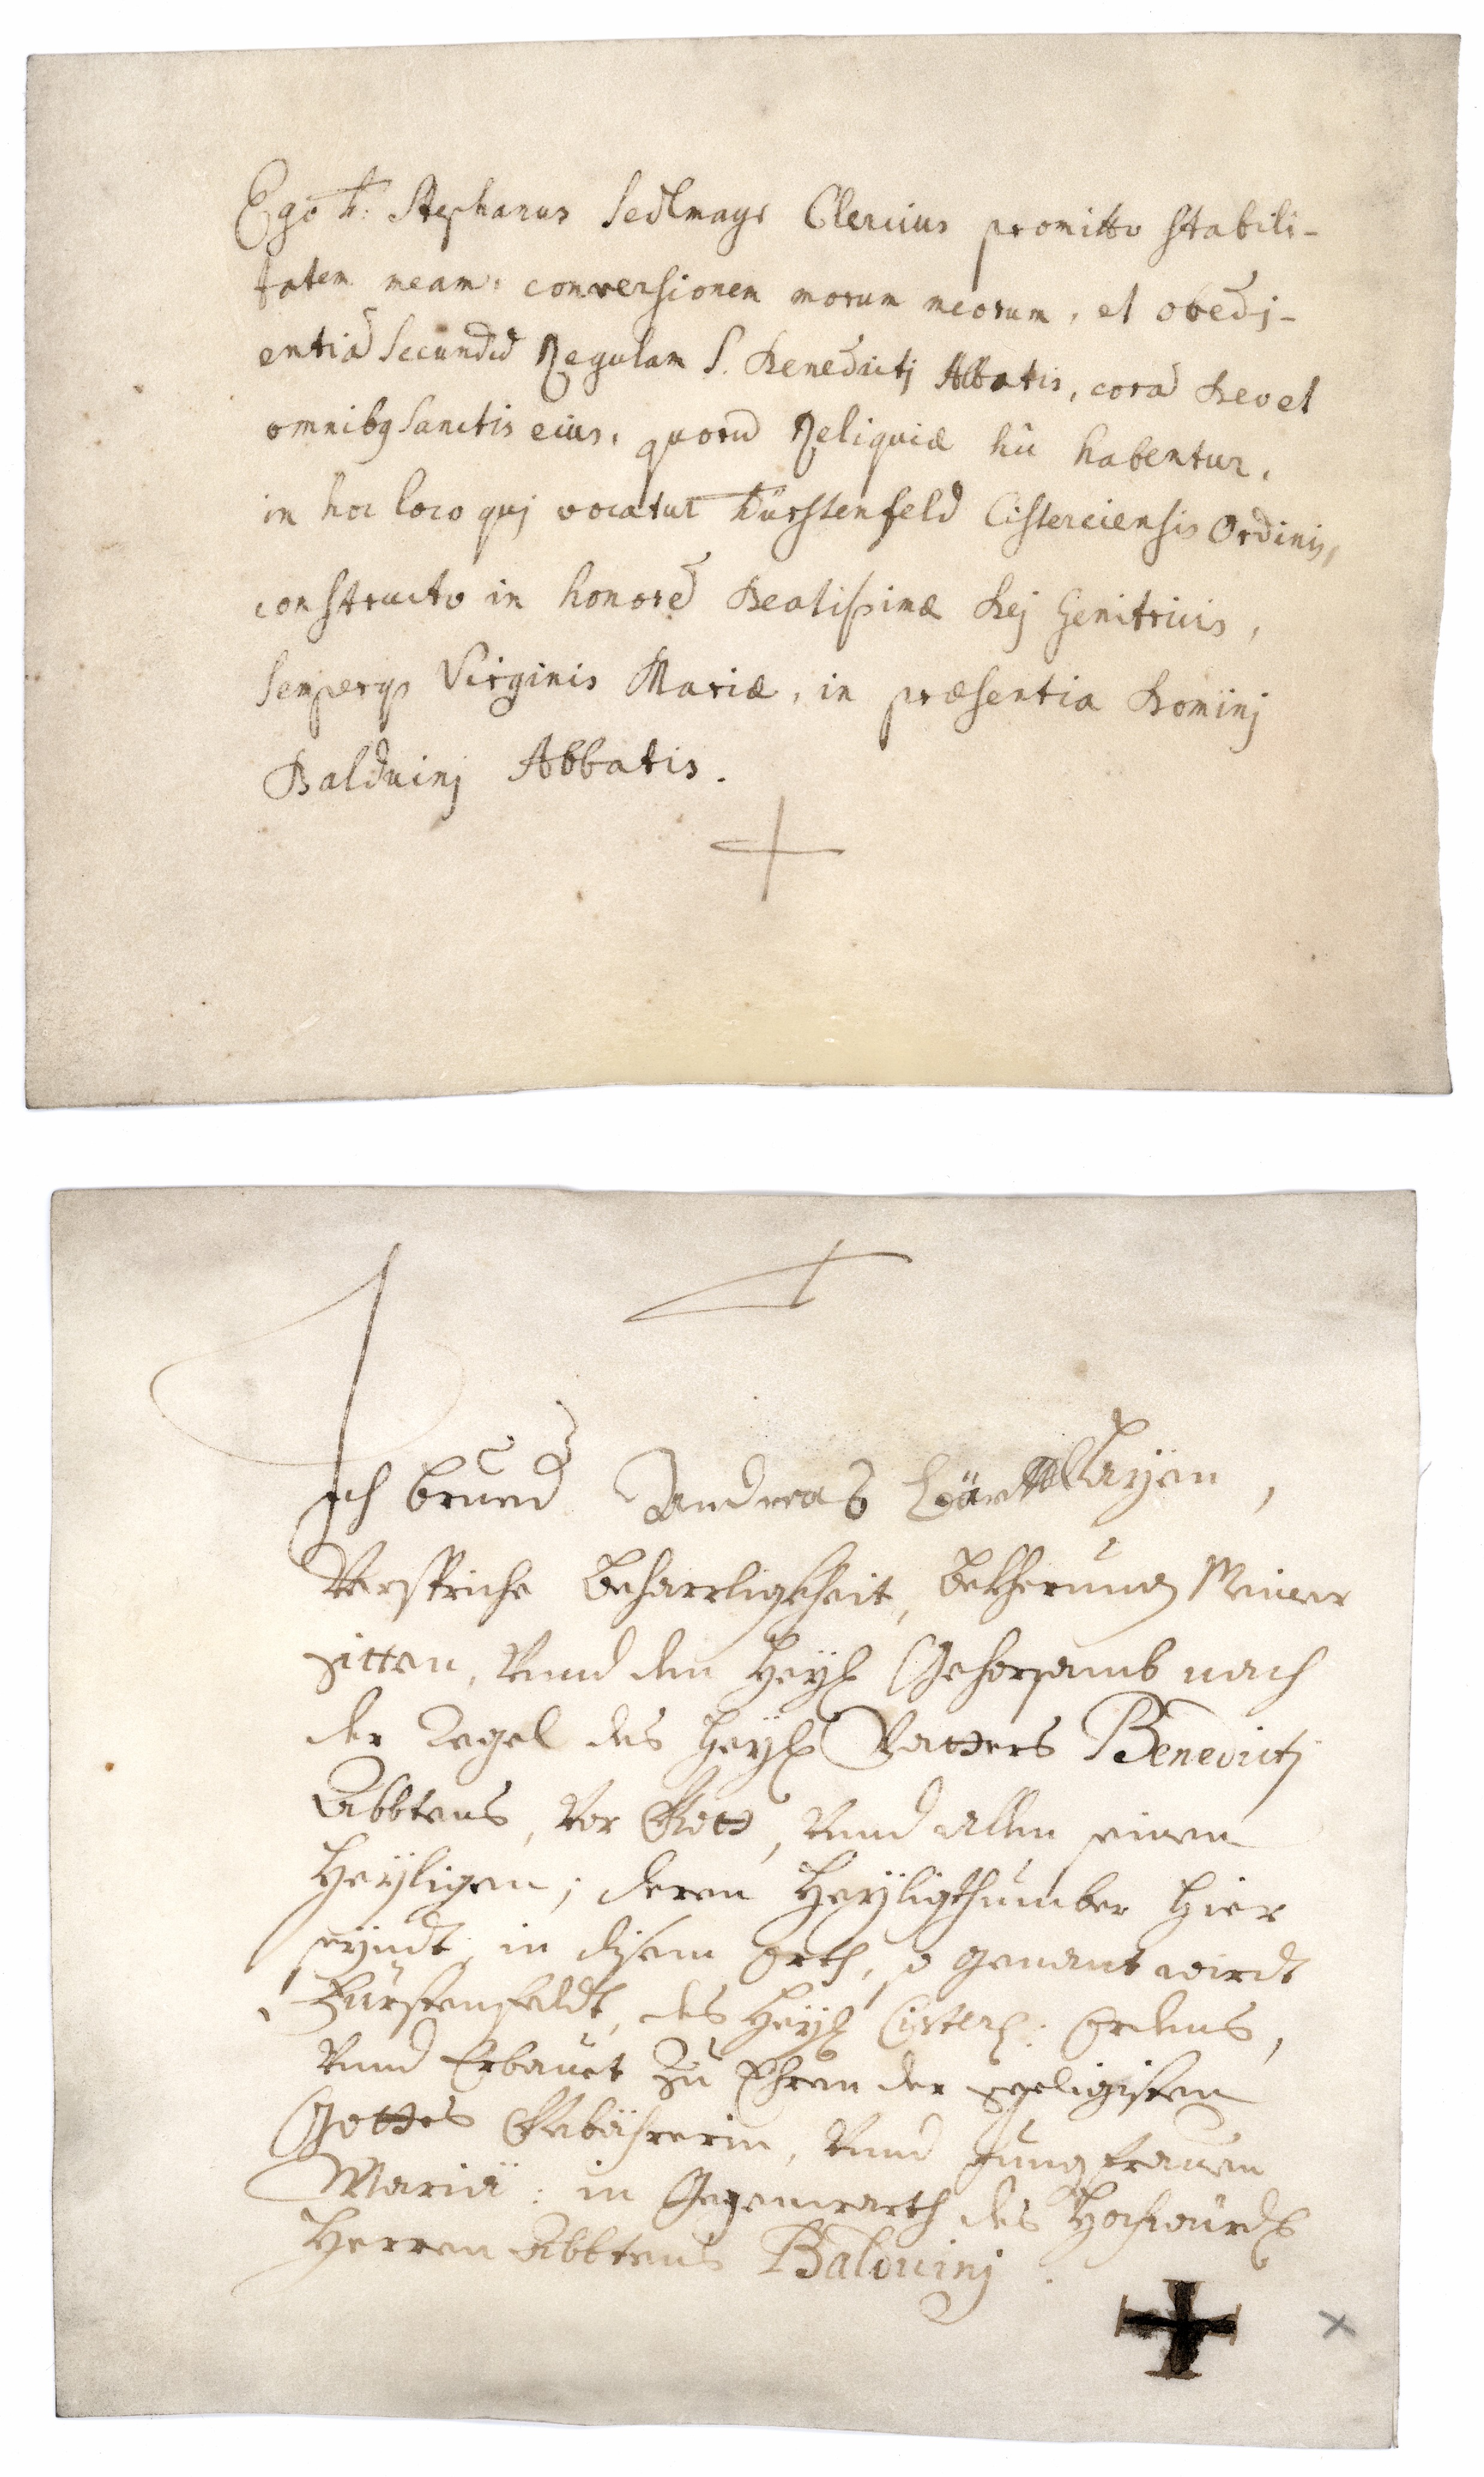 Ego F: Stephanus Sedlmayr Clericus promitto stabili-
tatem meam, conversionem morum meorum, et obedj-
entiā secundū Regulam S. Benedictj Abbatis, corā Deo et
omnibq Sanctis eius, quorū Reliquiæ hic habentur,
in hoc loco quj vocatur Fürstenfeld Cisterciensis Ordinis,
constructo in honorē Beatissimæ Dej Genitricis,
semperq Virginis Mariæ, in præsentia Dominj
Balduinj Abbatis.
Ich brued Andreas Layen,
Verspriche beharrligkheit, bekherung Meiner
sitten, Vnnd den Heyl Gehorsamb nach
der Regel des Heyl Vatters Benedictj
Abbtens, Vor Gott, Vnnd allen seinen
Heyligen; deren Heyligthumber hier
seyndt, in disem orth, so genant wirdt
Fürstenfeldt, des Heyl Cisterc: Ordens,
Vnnd Erbauet Zu Ehren der seeligisten
Gottes Gebährerin, Vnnd Jungfrauen
Mariä: in Gegenwarth des Hochwürd
Herren Abbtens Balduinj.